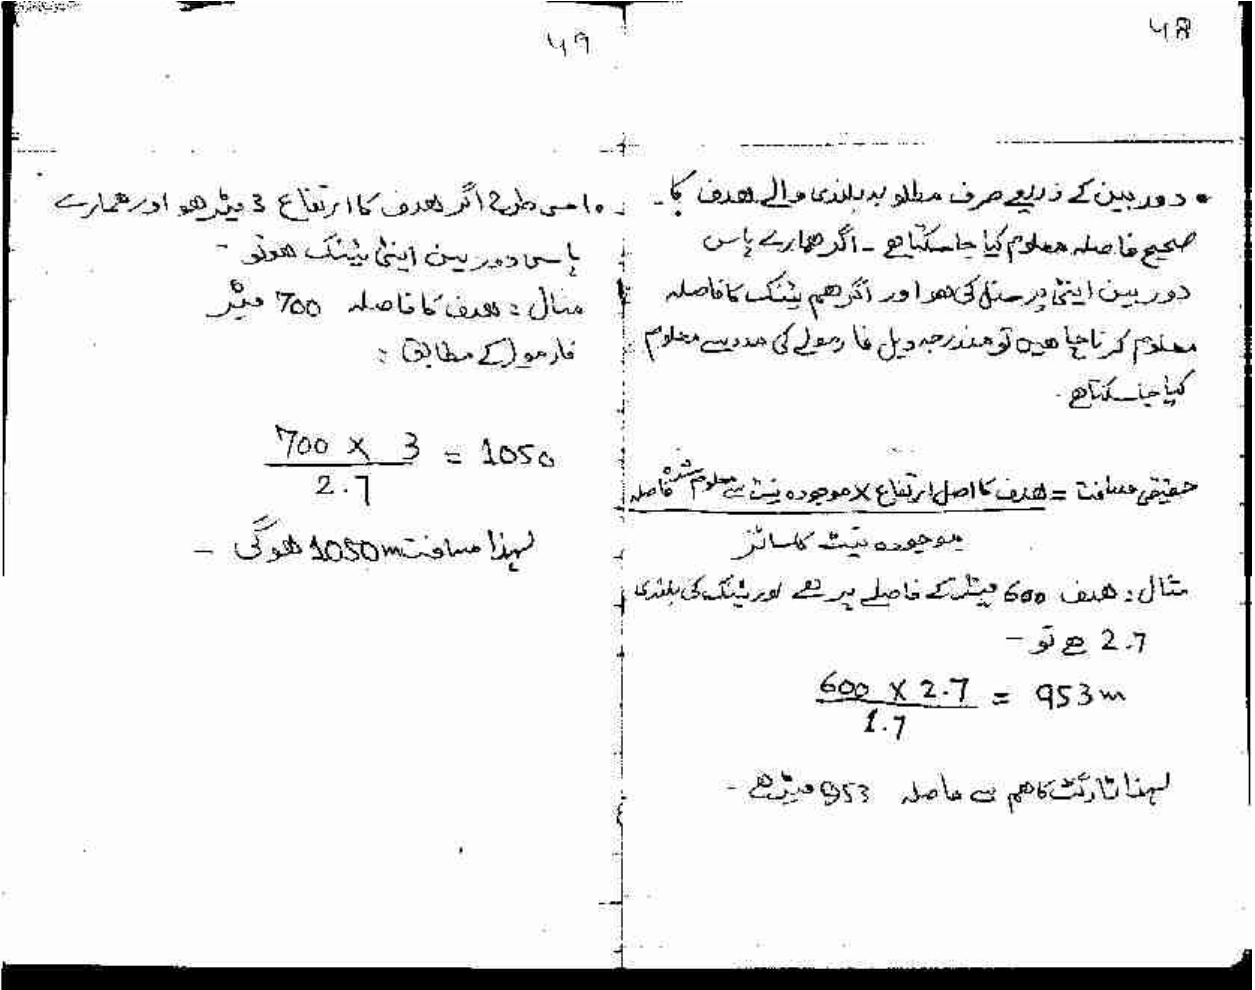 48
• دوربین کے ذریعے صرف مطلوبہ بلندی والے ھدف کا
صحیح فاصلہ معلوم کیا جاسکتا ھے - اگر ھمارے پاس
دوربین اینٹی پرسنل کی ھو اور اگر ھم ٹینک کا فاصلہ
معلوم کرنا چاھیں تو مندرجہ ذیل فارمولے کی مدد سے معلوم
کیا جاسکتا ھے -
حقیقی مسافت = ھدف کا اصل ارتفاع × موجودہ سے معلوم شدہ فاصلہ
موجودہ کا سائز
مثال : ھدف 600 میٹر کے فاصلے پر ھے اور ٹینک کی بلندی
2.7 ھے تو -
600 X 2.7 = 953 m
1.7
لہذا ٹارگٹ کا ھم سے فاصلہ 953 میٹر ھے -
49
• اسی طرح اگر ھدف کا ارتفاع 3 میٹر ھو اور ھمارے
پاس دوربین اینٹی ٹینک ھو تو -
مثال : ھدف کا فاصلہ 700 میٹر
فارمولے کے مطابق :
700 X 3 = 1050
2.7
لہذا مسافت 1050m ھوگی -